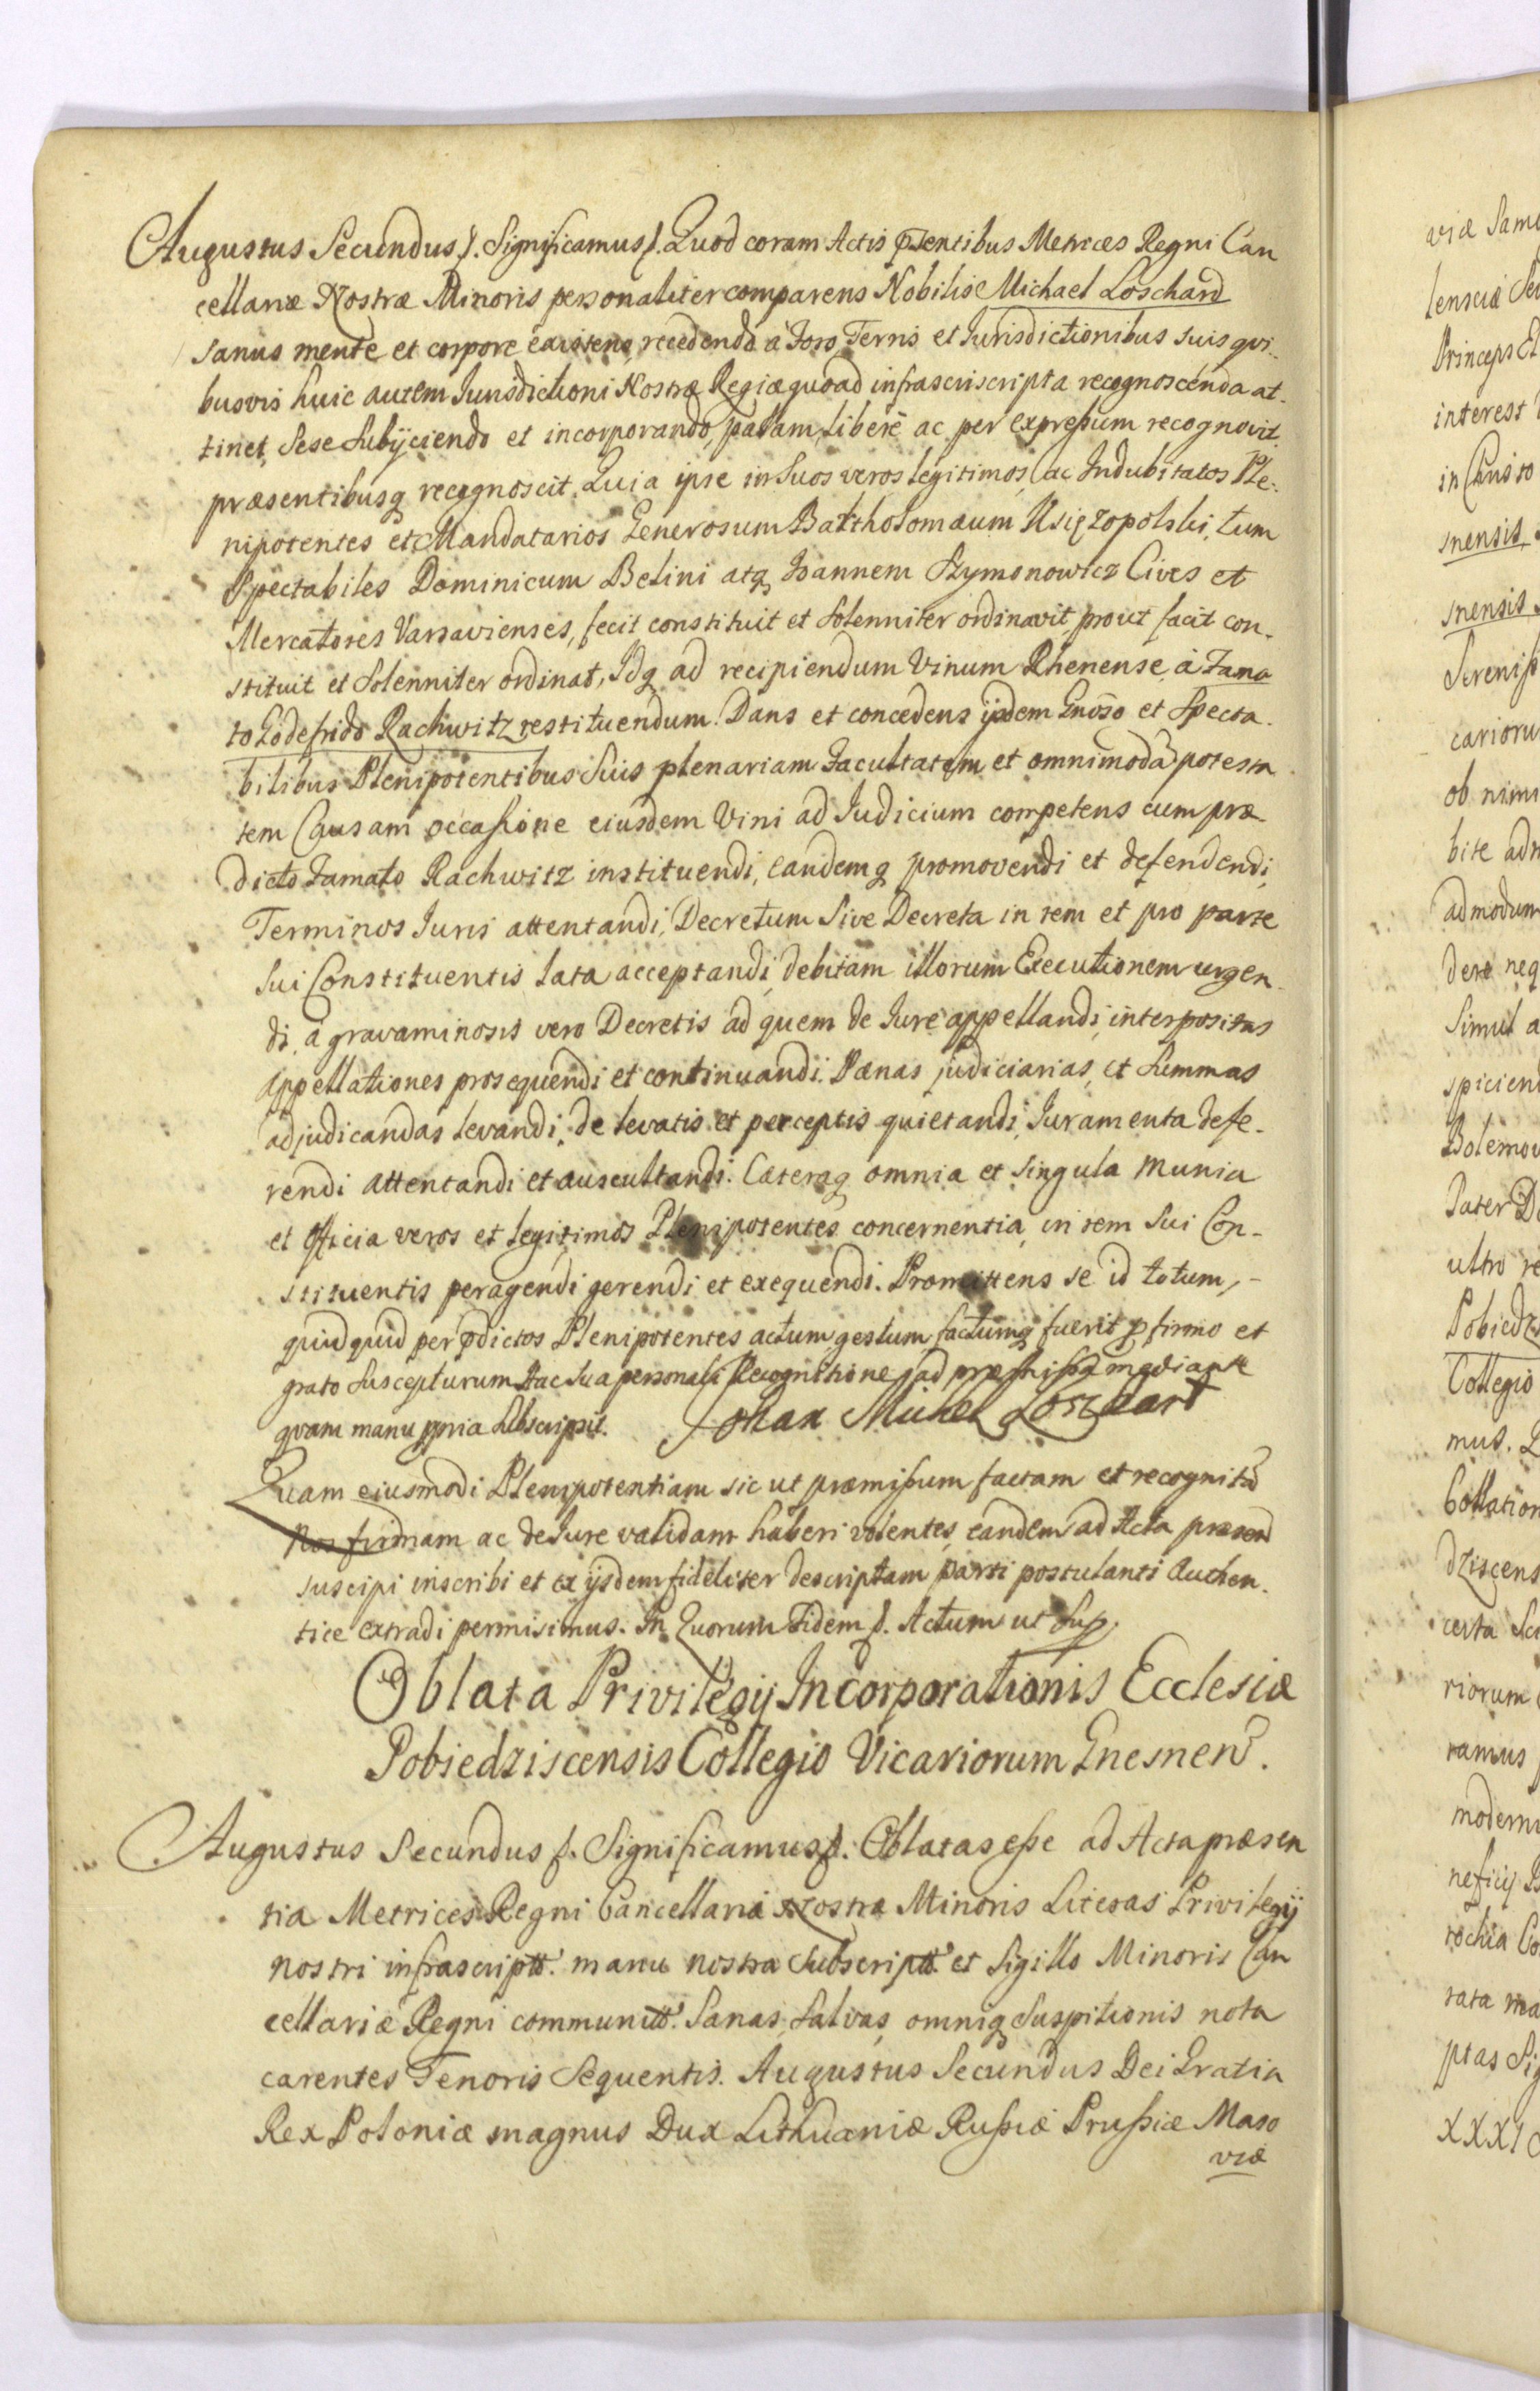 Augustus Secundus f. Significamus f. Quod coram Actis pntibus Metrices Regni Can
cellariæ Nostræ Minoris personaliter comparens Nobilis Michael Loschard
sanus mente et corpore existens, recedendo a Foro, Terris et Jurisdictionibus suis qvi-
busvis huic autem Jurisdictioni Nostræ Regiæ quoad infrascriscripta recognoscenda at-
tinet, sese Subÿciendo et incorporando, palam, liberè ac per expreßum recognovit.
præsentibusq recognoscit. Quia ipse in Suos veros legitimos, ac Indubitatos Ple-
nipotentes et Mandatarios Generosum Bartholomæum Xsiężopolski, tum
Spectabiles Dominicum Belini atq Joannem Szymonowicz Cives et
Mercatores Varsavienses, fecit constituit et solenniter ordinavit, prout facit con-
stituit et solenniter ordinat, Idq ad recipiendum Vinum Rhenense, à Fama
to Godefrido Rachwitz restituendum. Dans et concedens ÿsdem Gnõso et Specta-
bilibus Plenipotentibus Suis plenariam Facultatem et omnimodã potesta
tem Causam occasione eiusdem Vini ad Judicium competens cum præ
dicto Famato Rachwitz instituendi, eandemq promovendi et defendendi,
Terminos Juris attentandi, Decretum Sive Decreta in rem et pro parte
Sui Constituentis lata acceptandi, debitam illorum Executionem urgen-
di, à gravaminosis vero Decretis ad quem de Jure appellandi, interpositas
appellationes prosequendi et continuandi. Pænas judiciarias, et Summas
adjudicandas levandi, de levatis et perceptis quietandi, Juramenta defe-
rendi attentandi et auscultandi. Cæteraq omnia et singula munia
et officia veros et legitimos Plenipotentes concernentia, in rem Sui Con-
stituentis peragendi gerendi et exequendi. Promittens se id totum, -
quidquid per pdictos Plenipotentes actum, gestum, factumq fuerit p firmo et
grato Suscepturum Hac Sua personali Recognitione ad præmissa mediante
qvam manu ppria Subscripsit. Johan Michel Loschart
Quam eiusmodi Plenipotentiam sic ut præmißum factam et recognitã
Nos firmam ac de Jure validam haberi volentes, eandem ad Acta præsen
suscipi inscribi et ex ÿsdem fideliter descriptam parti postulanti authen-
tice extradi permisimus. In Quorum Fidem f. Actum ut Sup.
Oblata Privilegÿ Incorporationis Ecclesiæ
Pobiedziscensis Collegio Vicariorum Gnesnen.
Augustus Secundus f. Significamus f. Oblatas eße ad Acta præsen
tia Metrices Regni Cancellariæ Nostræ Minoris Literas Privilegÿ
nostri infrascriptt. manu nostra Subscriptt. et Sigillo Minoris Can
cellariæ Regni communitt. Sanas, Salvas, omniq Suspitionis nota
carentes Tenoris Sequentis. Augustus Secundus Dei Gratia
Rex Poloniæ magnus Dux Lithuaniæ Rußiæ Prußiæ Maso
viæ
viæ Samo
lensciæ Se
Princeps El
interest
in Christo
snensis
snensis
Sereniß
carioru
ob nimi
bite adm
admodum
dere neq
Simul a
spiciend
Bolemov
Pater D
ultro re
Pobiedz
Collegio
mus.
Collation
dziscens
certa Sc
riorum
ramus
moderni
neficÿ
rochia Co
rata ma
ptas Sig
XXXI